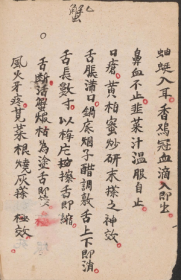 蚰蜒入耳香鷄冠血滴入即出
鼻血不止韭菜汁溫服自止
口瘡黃柏蜜炒研末搽之神效
舌脹滿口鍋底烟子醋調敷舌上下即消
舌長數寸以梅片摻舌即縮
舌斷活蟹燬枯為塗舌即
風火牙疼莧菜根燒灰搽 極效